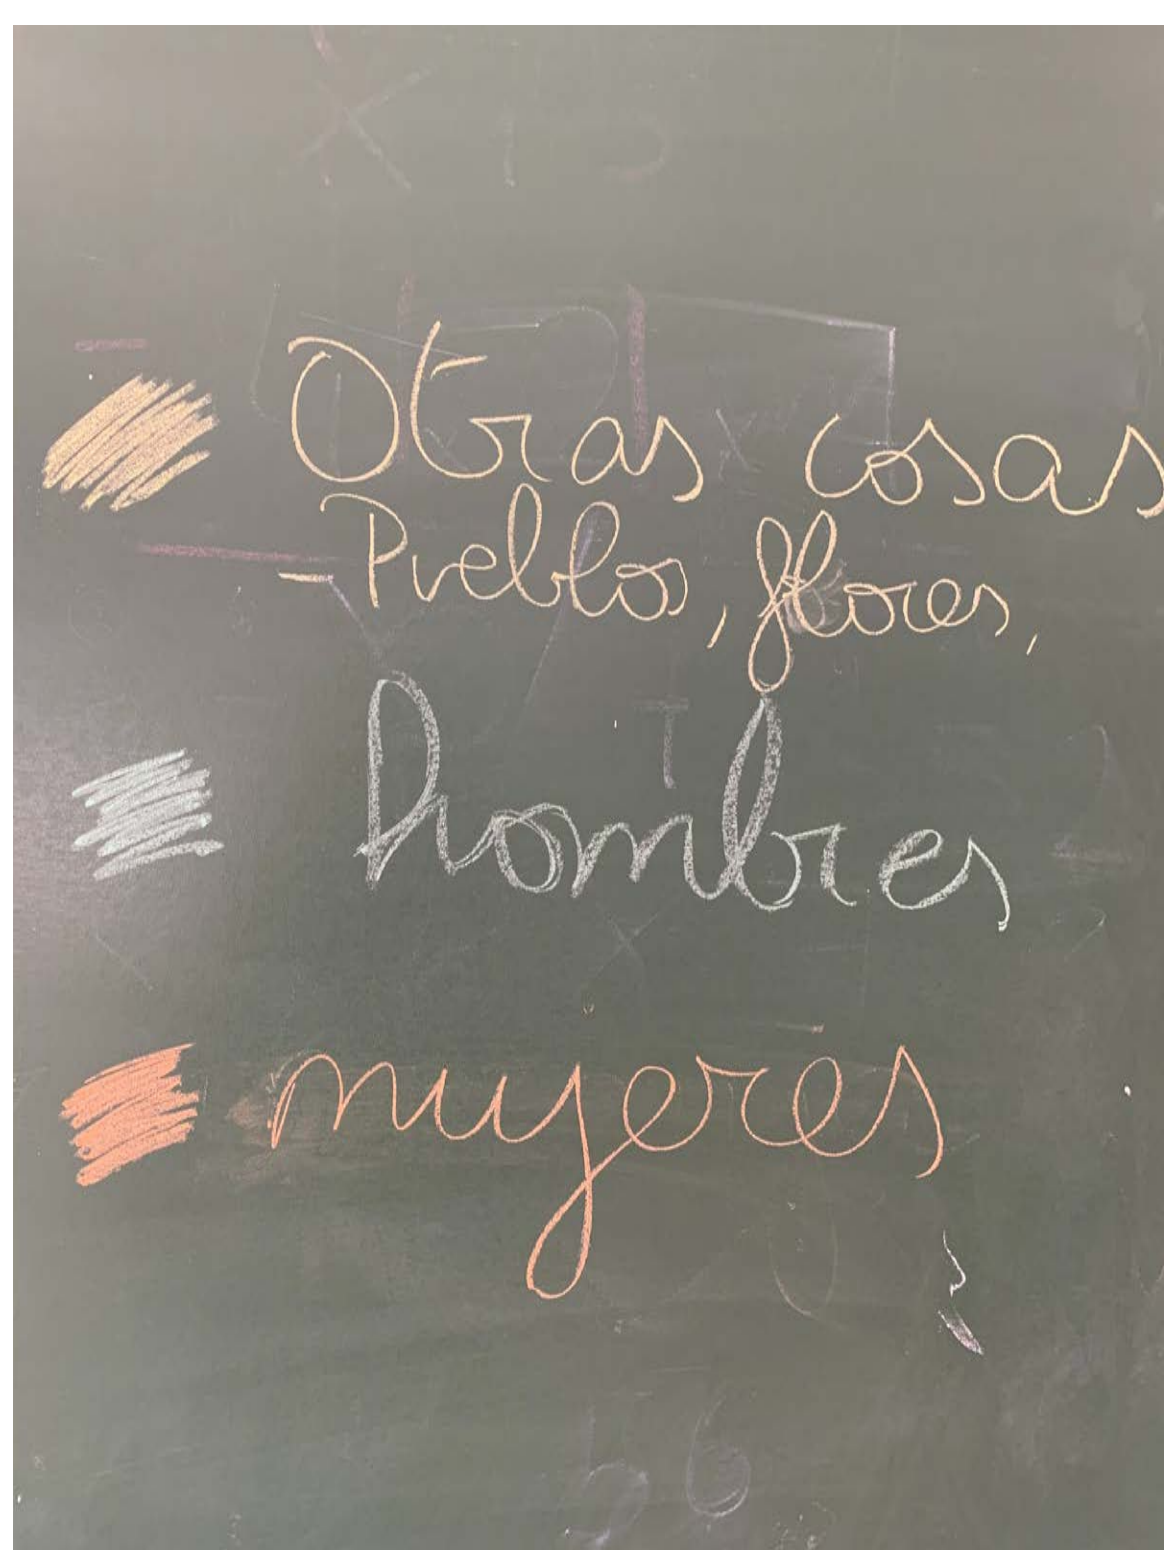 Otras cosas
- Pueblos, flores,
hombres
mujeres